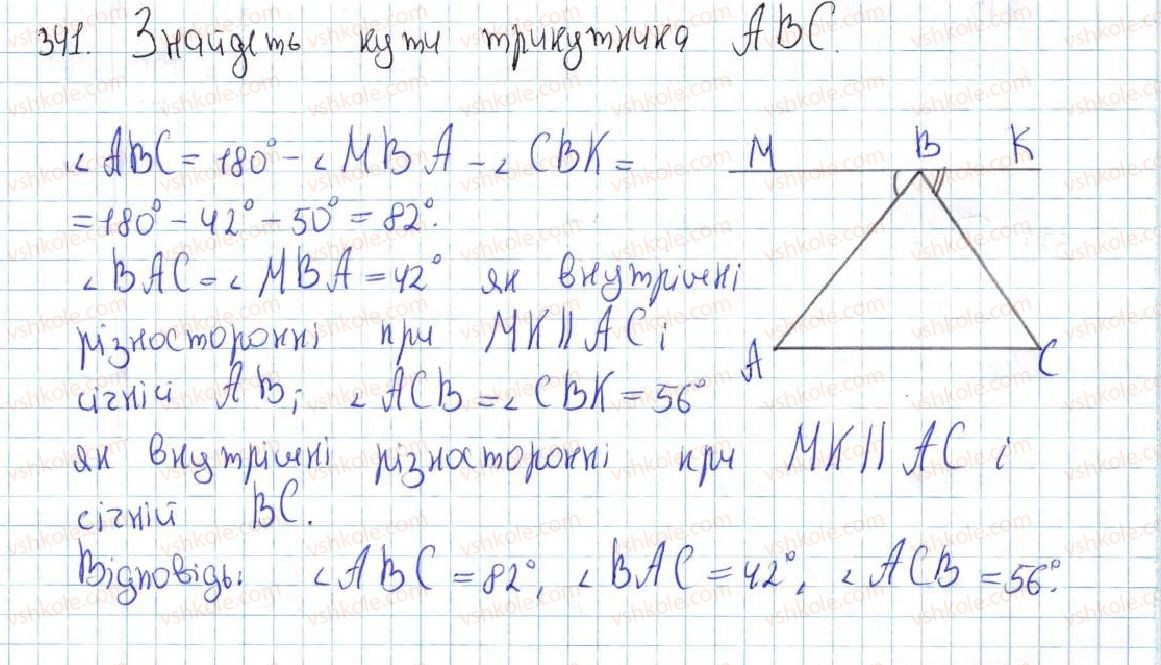 341. Знайдеть кути трикутника ABC.
∠ABC = 180° - ∠MBA - ∠CBK =
= 180° - 42° - 50° = 82°.
∠BAC = ∠MBA = 42° як внутрішні
різносторонні при MK || AC і
січній AB; ∠ACB = ∠CBK = 56°
як внутрішні різносторонні при MK || AC і
січній BC.
Відповідь: ∠ABC = 82°, ∠BAC = 42°, ∠ACB = 56°.
M B K
A C
vshkole.com